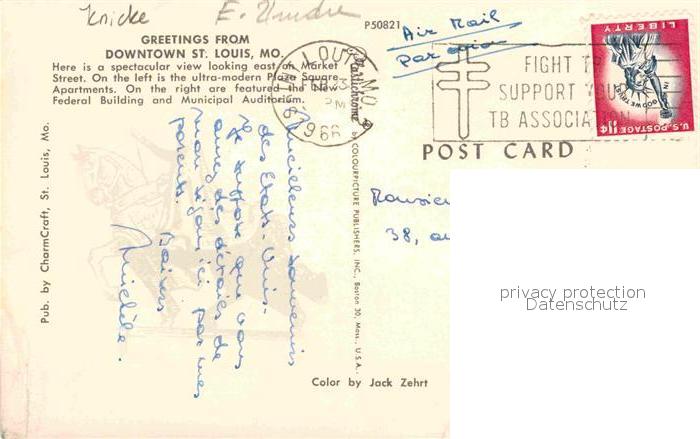 Knicke
P50821
GREETINGS FROM
DOWNTOWN ST. LOUIS, MO.
Here is a spectacular view looking east on Market
Street. On the left is the ultra-modern Plaza Square
Apartments. On the right are featured the New
Federal Building and Municipal Auditorium.
Pub. by CharmCraft, St. Louis, Mo.
Meilleurs souvenirs
des Etats-Unis.
Je suppose que vous
aurez des détails de
mon séjour ici par mes
parents.
Baisers
Michèle.
by COLOURPICTURE PUBLISHERS, INC., Boston 30, Mass., U.S.A.
Color by Jack Zehrt
LOUIS, MO.
PM
1966
Air Mail
Par avion
FIGHT TB
SUPPORT YOUR
TB ASSOCIATION
LIBERTY
IN GOD WE TRUST
U.S. POSTAGE 11¢
POST CARD
Monsieu
38, a
privacy protection
Datenschutz